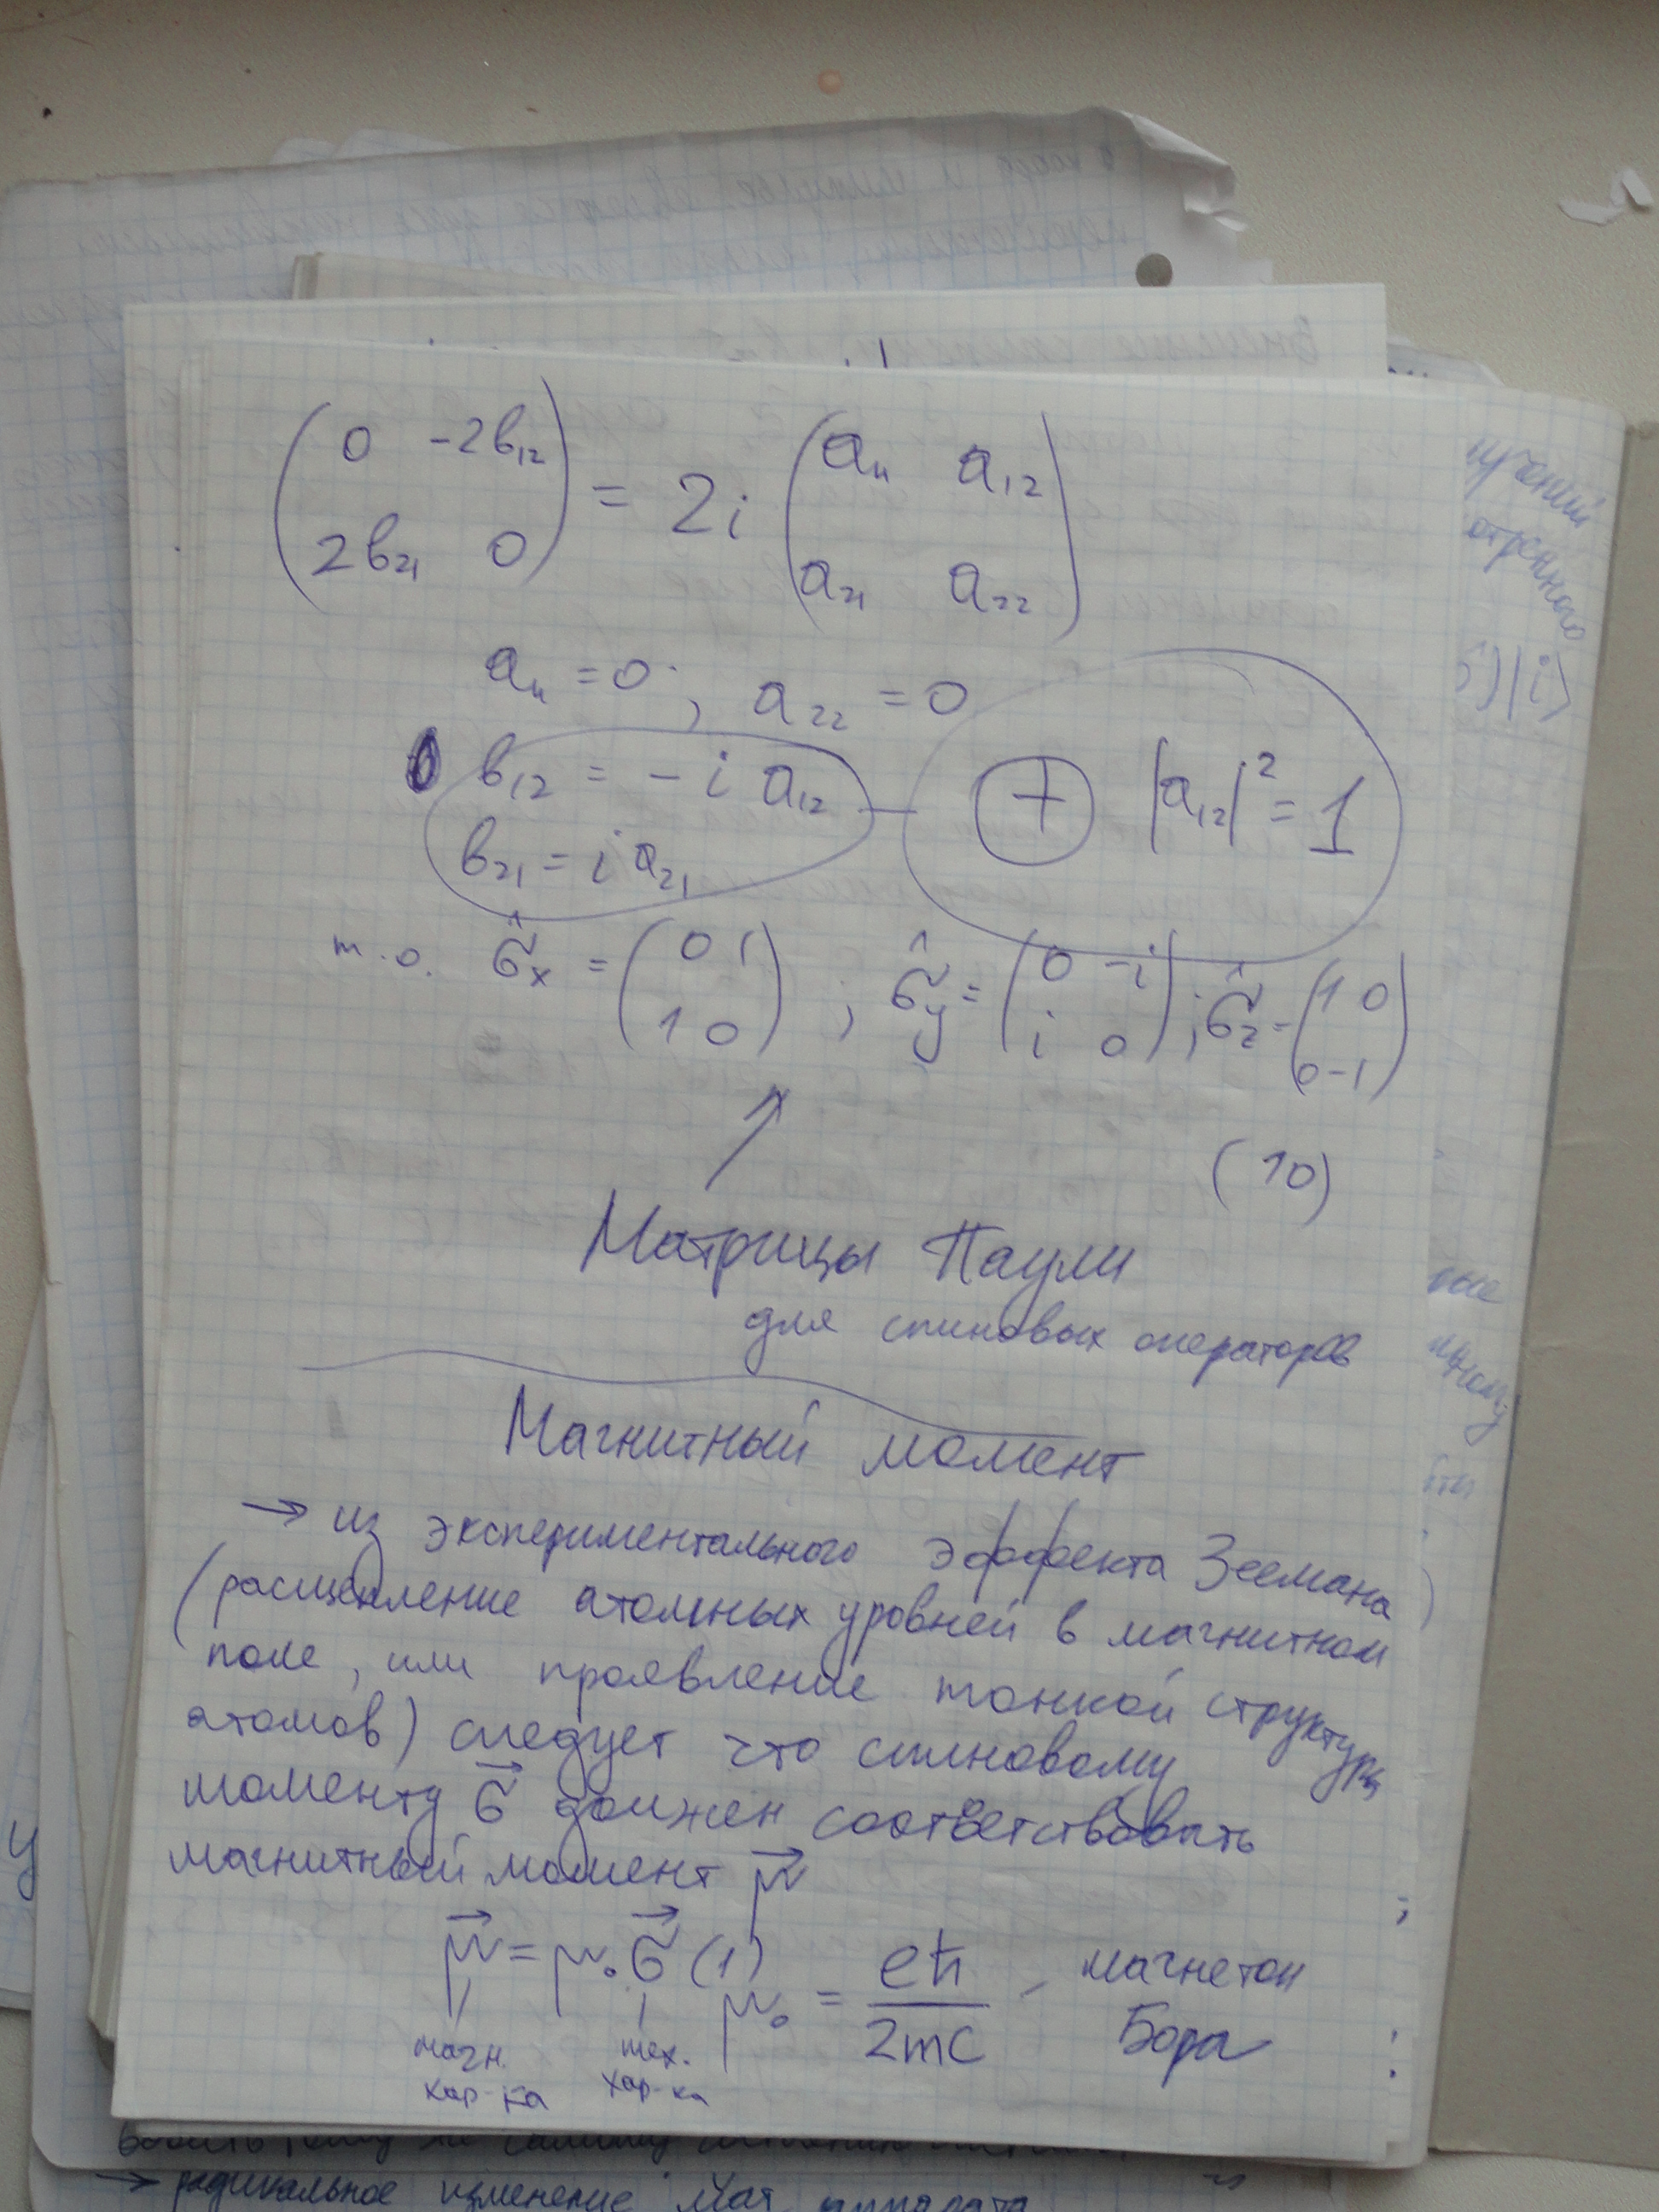 ( 0 -2b₁₂ ; 2b₂₁ 0 ) = 2i ( a₁₁ a₁₂ ; a₂₁ a₂₂ )
a₁₁ = 0 ; a₂₂ = 0
b₁₂ = - i a₁₂
b₂₁ = i a₂₁
+ |a₁₂|² = 1
т.о. σ̂x = ( 0 1 ; 1 0 ) ; σ̂y = ( 0 -i ; i 0 ) ; σ̂z = ( 1 0 ; 0 -1 )
(10)
Матрицы Паули
для спиновых операторов
Магнитный момент
→ из экспериментального эффекта Зеемана
(расщепление атомных уровней в магнитном
поле, или проявление тонкой структуры
атомов) следует что спиновому
моменту σ⃗ должен соответствовать
магнитный момент μ⃗
μ⃗ = μ₀ σ⃗ (1) μ₀ = eħ / 2mc - магнетон
Бора
магн. мех.
хар-ка хар-ка
→ радикальное изменение мат. аппарата